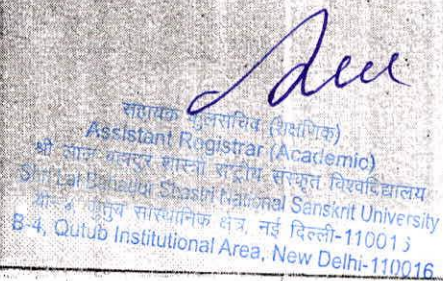 सहायक कुलसचिव (शैक्षणिक)
Assistant Registrar (Academic)
श्री लाल बहादुर शास्त्री राष्ट्रीय संस्कृत विश्वविद्यालय
Shri Lal Bahadur Shastri National Sanskrit University
बी-4, कुतुब सांस्थानिक क्षेत्र, नई दिल्ली-110016
B-4, Qutub Institutional Area, New Delhi-110016